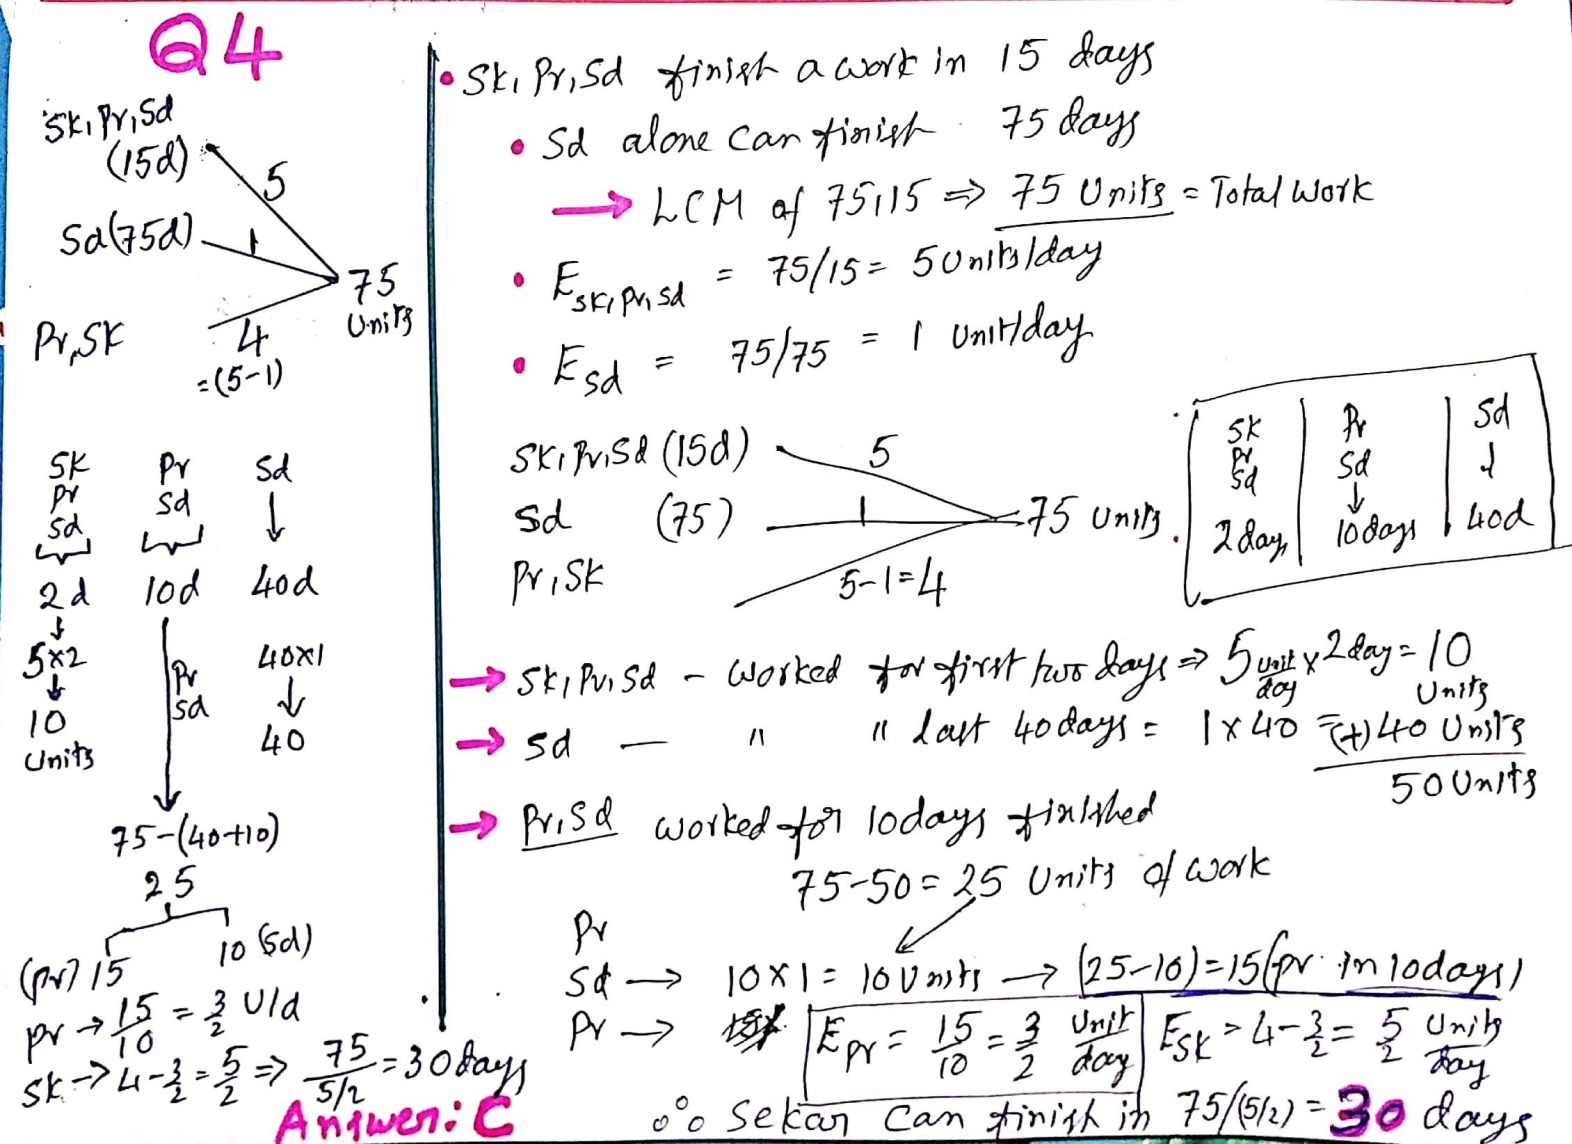 Q4
Sk, Pr, Sd
(15d)
5
Sd(75d)
1
75
Units
Pr, SK
4
=(5-1)
SK Pr Sd
Pr Sd ↓
Sd
2d 10d 40d
↓
5x2 Pr 40x1
↓ Sd ↓
10 40
Units
75-(40+10)
25
(Pr) 15 10 (Sd)
Pr → 15/10 = 3/2 U/d
SK → 4-3/2 = 5/2 ⇒ 75/5/2 = 30 days
Answer: C
• Sk, Pr, Sd finish a work in 15 days
• Sd alone can finish 75 days
→ LCM of 75,15 ⇒ 75 Units = Total Work
• E Sk, Pr, Sd = 75/15 = 5 Units/day
• E Sd = 75/75 = 1 Unit/day
SK, Pr, Sd (15d) 5
Sd (75) 1 75 Units
Pr, SK 5-1=4
SK Pr Sd
Pr Sd ↓
Sd ↓
2 days 10 days 40d
→ Sk, Pr, Sd - worked for first two days ⇒ 5 unit/day x 2 day = 10 Units
→ Sd — " " last 40 days = 1 x 40 = (+) 40 Units
50 Units
→ Pr, Sd worked for 10 days finished
75-50 = 25 Units of work
Pr
Sd → 10 x 1 = 10 Units → (25-10) = 15 (Pr in 10 days)
Pr → E Pr = 15/10 = 3/2 Unit/day E SK = 4-3/2 = 5/2 Units/day
∴ Sekar can finish in 75/(5/2) = 30 days